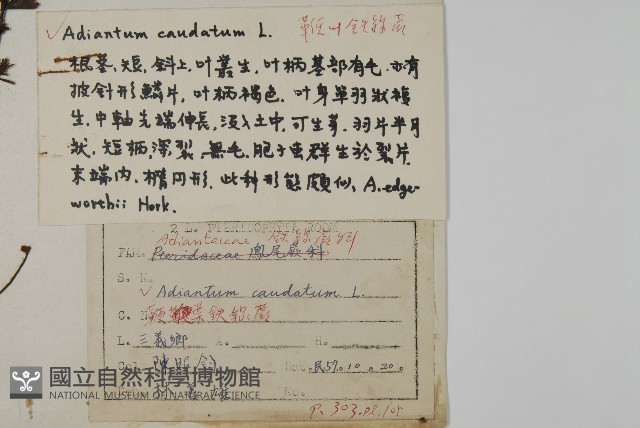 ✓ Adiantum caudatum L. 鞭叶铁線蕨
根莖、短, 斜上, 叶叢生, 叶柄基部有毛. 亦有
披針形鱗片, 叶柄褐色, 叶身單羽狀複
生, 中軸先端伸長, 沒入土中, 可生芽. 羽片半月
狀, 短柄, 深裂, 無毛. 胞子囊群生於裂片
末端內, 橢円形, 此种形態頗似 A. edge-
worthii Hook.
2 L. PTERIDOPHYTA ROOM
Adiantaceae 鉄線蕨科
FAM. Pteridaceae 鳳尾蕨科
S. N.
✓ Adiantum caudatum L.
C. N. 鞭葉鉄線蕨
L. 三義鄉 A. H.
Col. 陳 民57.10.20.
林 雄 No.
P. 303. pl. 105
國立自然科學博物館
NATIONAL MUSEUM OF NATURAL SCIENCE